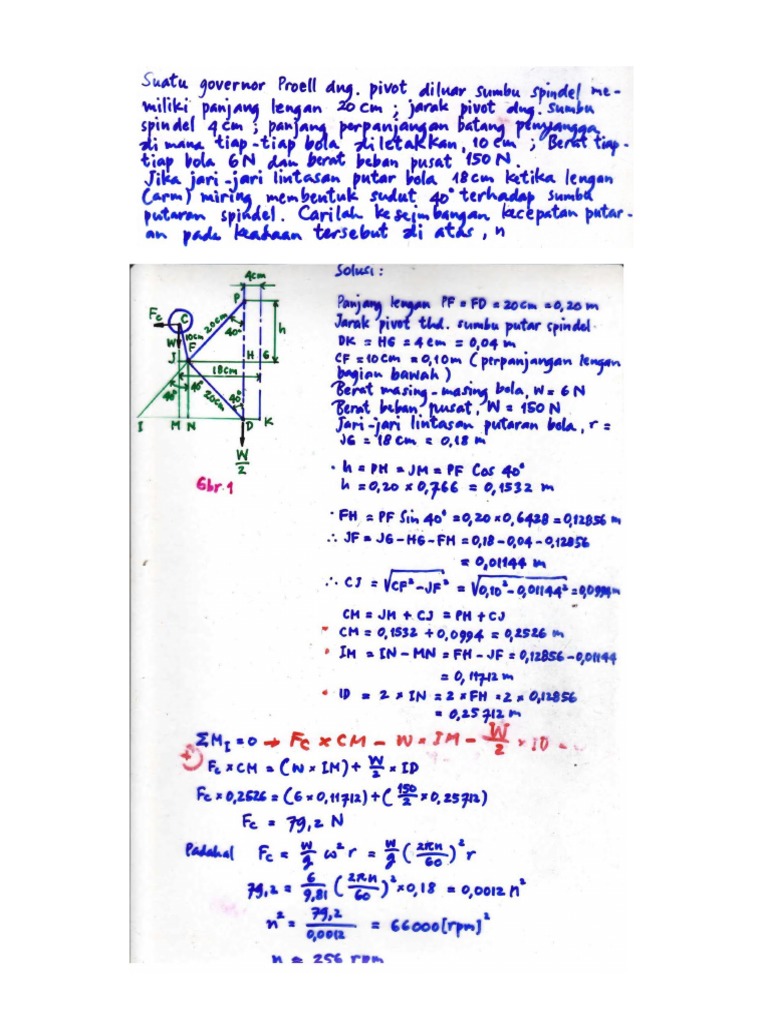 Suatu governor Proell dng. pivot diluar sumbu spindel me-
miliki panjang lengan 20 cm ; jarak pivot dng. sumbu
spindel 4 cm ; panjang perpanjangan batang penyangga
di mana tiap-tiap bola diletakkan, 10 cm ; Berat tiap-
tiap bola 6N dan berat beban pusat 150 N.
Jika jari-jari lintasan putar bola 18 cm ketika lengan
(arm) miring membentuk sudut 40° terhadap sumbu
putaran spindel. Carilah keseimbangan kecepatan putar-
an pada keadaan tersebut di atas, n
4cm
Fc
C
P
20cm
40°
h
10cm
W
F
J
H
G
18cm
40°
40°
20cm
40°
I
M
N
D
K
W/2
Gbr. 1
Solusi :
Panjang lengan PF = FD = 20 cm = 0,20 m
Jarak pivot thd. sumbu putar spindel
DK = HG = 4 cm = 0,04 m
CF = 10 cm = 0,10 m (perpanjangan lengan
bagian bawah)
Berat masing-masing bola, w = 6 N
Berat beban pusat, W = 150 N
Jari-jari lintasan putaran bola, r =
JG = 18 cm = 0,18 m
· h = PH = JM = PF Cos 40°
h = 0,20 x 0,766 = 0,1532 m
· FH = PF Sin 40° = 0,20 x 0,6428 = 0,12856 m
∴ JF = JG - HG - FH = 0,18 - 0,04 - 0,12856
= 0,01144 m
∴ CJ = √CF² - JF² = √0,10² - 0,01144² = 0,0994 m
CM = JM + CJ = PH + CJ
· CM = 0,1532 + 0,0994 = 0,2526 m
· IM = IN - MN = FH - JF = 0,12856 - 0,01144
= 0,11712 m
· ID = 2 x IN = 2 x FH = 2 x 0,12856
= 0,25712 m
ΣM_I = 0 → Fc x CM - W x IM - W/2 x ID
+
Fc x CM = (W x IM) + W/2 x ID
Fc x 0,2526 = (6 x 0,11712) + (150/2 x 0,25712)
Fc = 79,2 N
Padahal Fc = w/g ω² r = w/g (2πn/60)² r
79,2 = 6/9,81 (2πn/60)² x 0,18 = 0,0012 n²
n² = 79,2/0,0012 = 66000 [rpm]²
n = 256 rpm